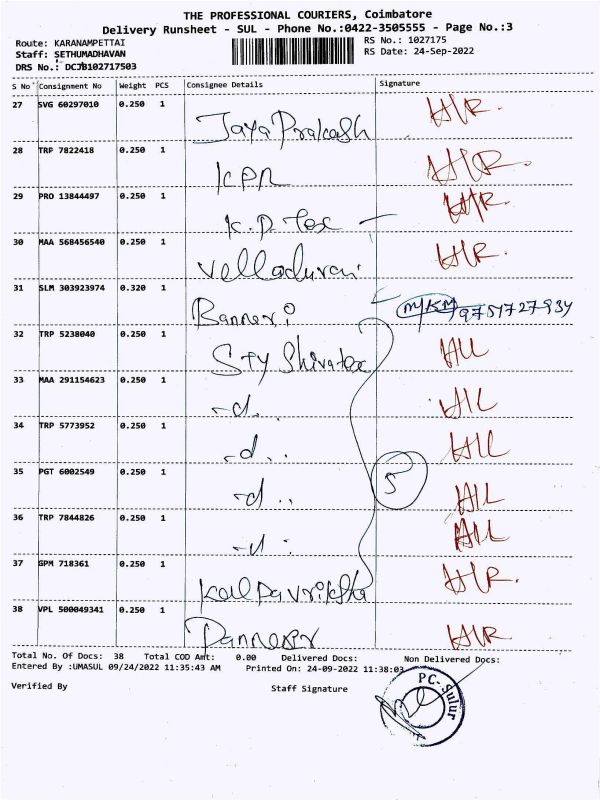 THE PROFESSIONAL COURIERS, Coimbatore
Delivery Runsheet - SUL - Phone No.:0422-3505555 - Page No.:3
Route: KARANAMPETTAI RS No.: 1027175
Staff: SETHUMADHAVAN RS Date: 24-Sep-2022
DRS No.: DCJB102717503
S No Consignment No Weight PCS Consignee Details Signature
27 SVG 60297010 0.250 1
Jaya Prakash
28 TRP 7822418 0.250 1
KPR
29 PRO 13844497 0.250 1
K.P. Tex
30 MAA 568456540 0.250 1
Velladurai
31 SLM 303923974 0.320 1
Banneri MKM 9751727934
32 TRP 5238040 0.250 1
STY Shivatex
33 MAA 291154623 0.250 1
-d.
34 TRP 5773952 0.250 1
-d..
35 PGT 6002549 0.250 1
-d.. 5
36 TRP 7844826 0.250 1
-d.
37 GPM 718361 0.250 1
38 VPL 500049341 0.250 1
Total No. Of Docs: 38 Total COD Amt: 0.00 Delivered Docs: Non Delivered Docs:
Entered By :UMASUL 09/24/2022 11:35:43 AM Printed On: 24-09-2022 11:38:03
Verified By Staff Signature
PC-Sulur